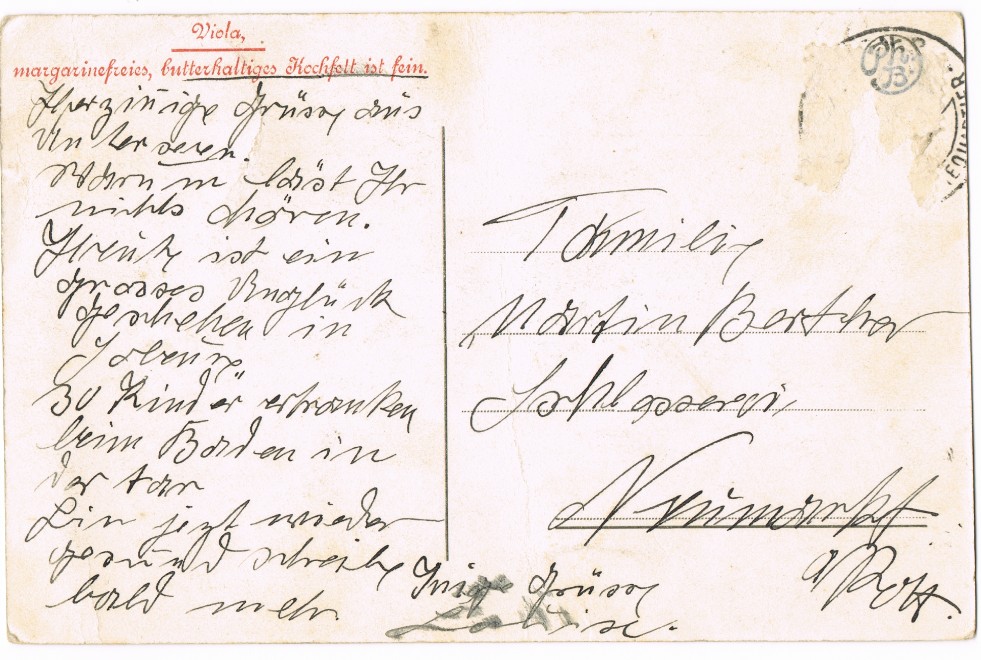 Viola,
margarinefreies, butterhaltiges Kochfett ist fein.
Herzinige Grüsse aus
Unterseen.
Warum läst Ihr
nichts hören.
Heute ist ein
grosses Unglück
geschehen in
30 Kinder ertranken
beim Baden in
der Aar
Bin jezt wieder
gesund schreibe
bald mehr.
Inige Grüsse
Louise.
Ph.
B.
Familie
Martin Berther
Schlosserei
Neumarkt
a/Rott.